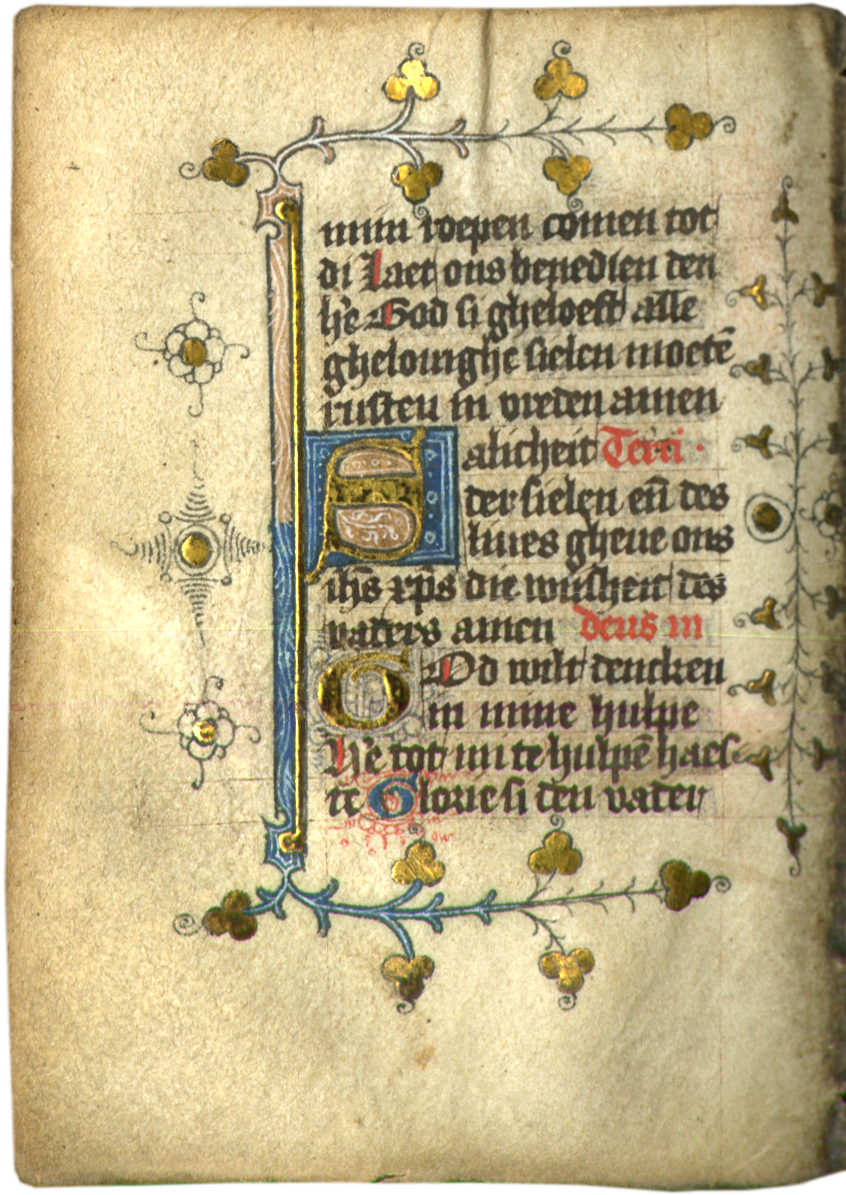 min roepen comen tot
di Laet ons benedien den
h'e God si gheloeft alle
ghelouighe sielen moetē
rusten in vreden amen
Salicheit Terci·
der sielen eñ des
liues gheue ons
ihs xp̄s die wijsheit des
vaders amen deus in
God wilt dencken
in mine hulpe
He tot mi te hulpē haes
te Glorie si den vader